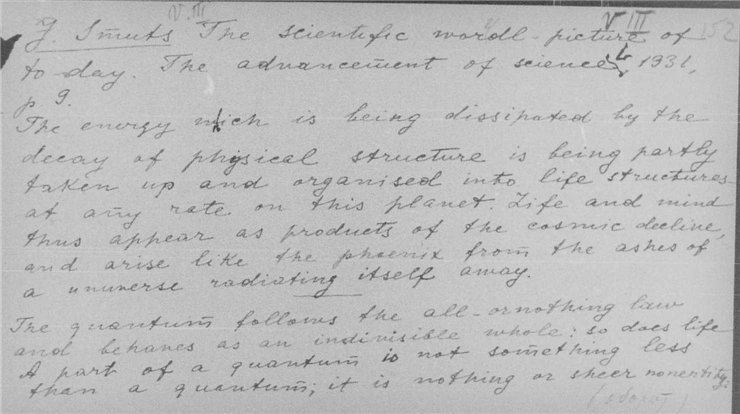 V. III
V III
152
J. Smuts The scientific wordl-picture of
to-day. The advancement of science, L, 1931,
p 9.
The energy which is being dissipated by the
decay of physical structure is being partly
taken up and organised into life structures -
at any rate on this planet. Life and mind
thus appear as products of the cosmic decline,
and arise like the phoenix from the ashes of
a ununverse radiating itself away.
The quantum follows the all-ornothing law
and behanes as an indivisible whole: so does life
A part of a quantum is not something less
than a quantum; it is nothing or sheer nonentity: